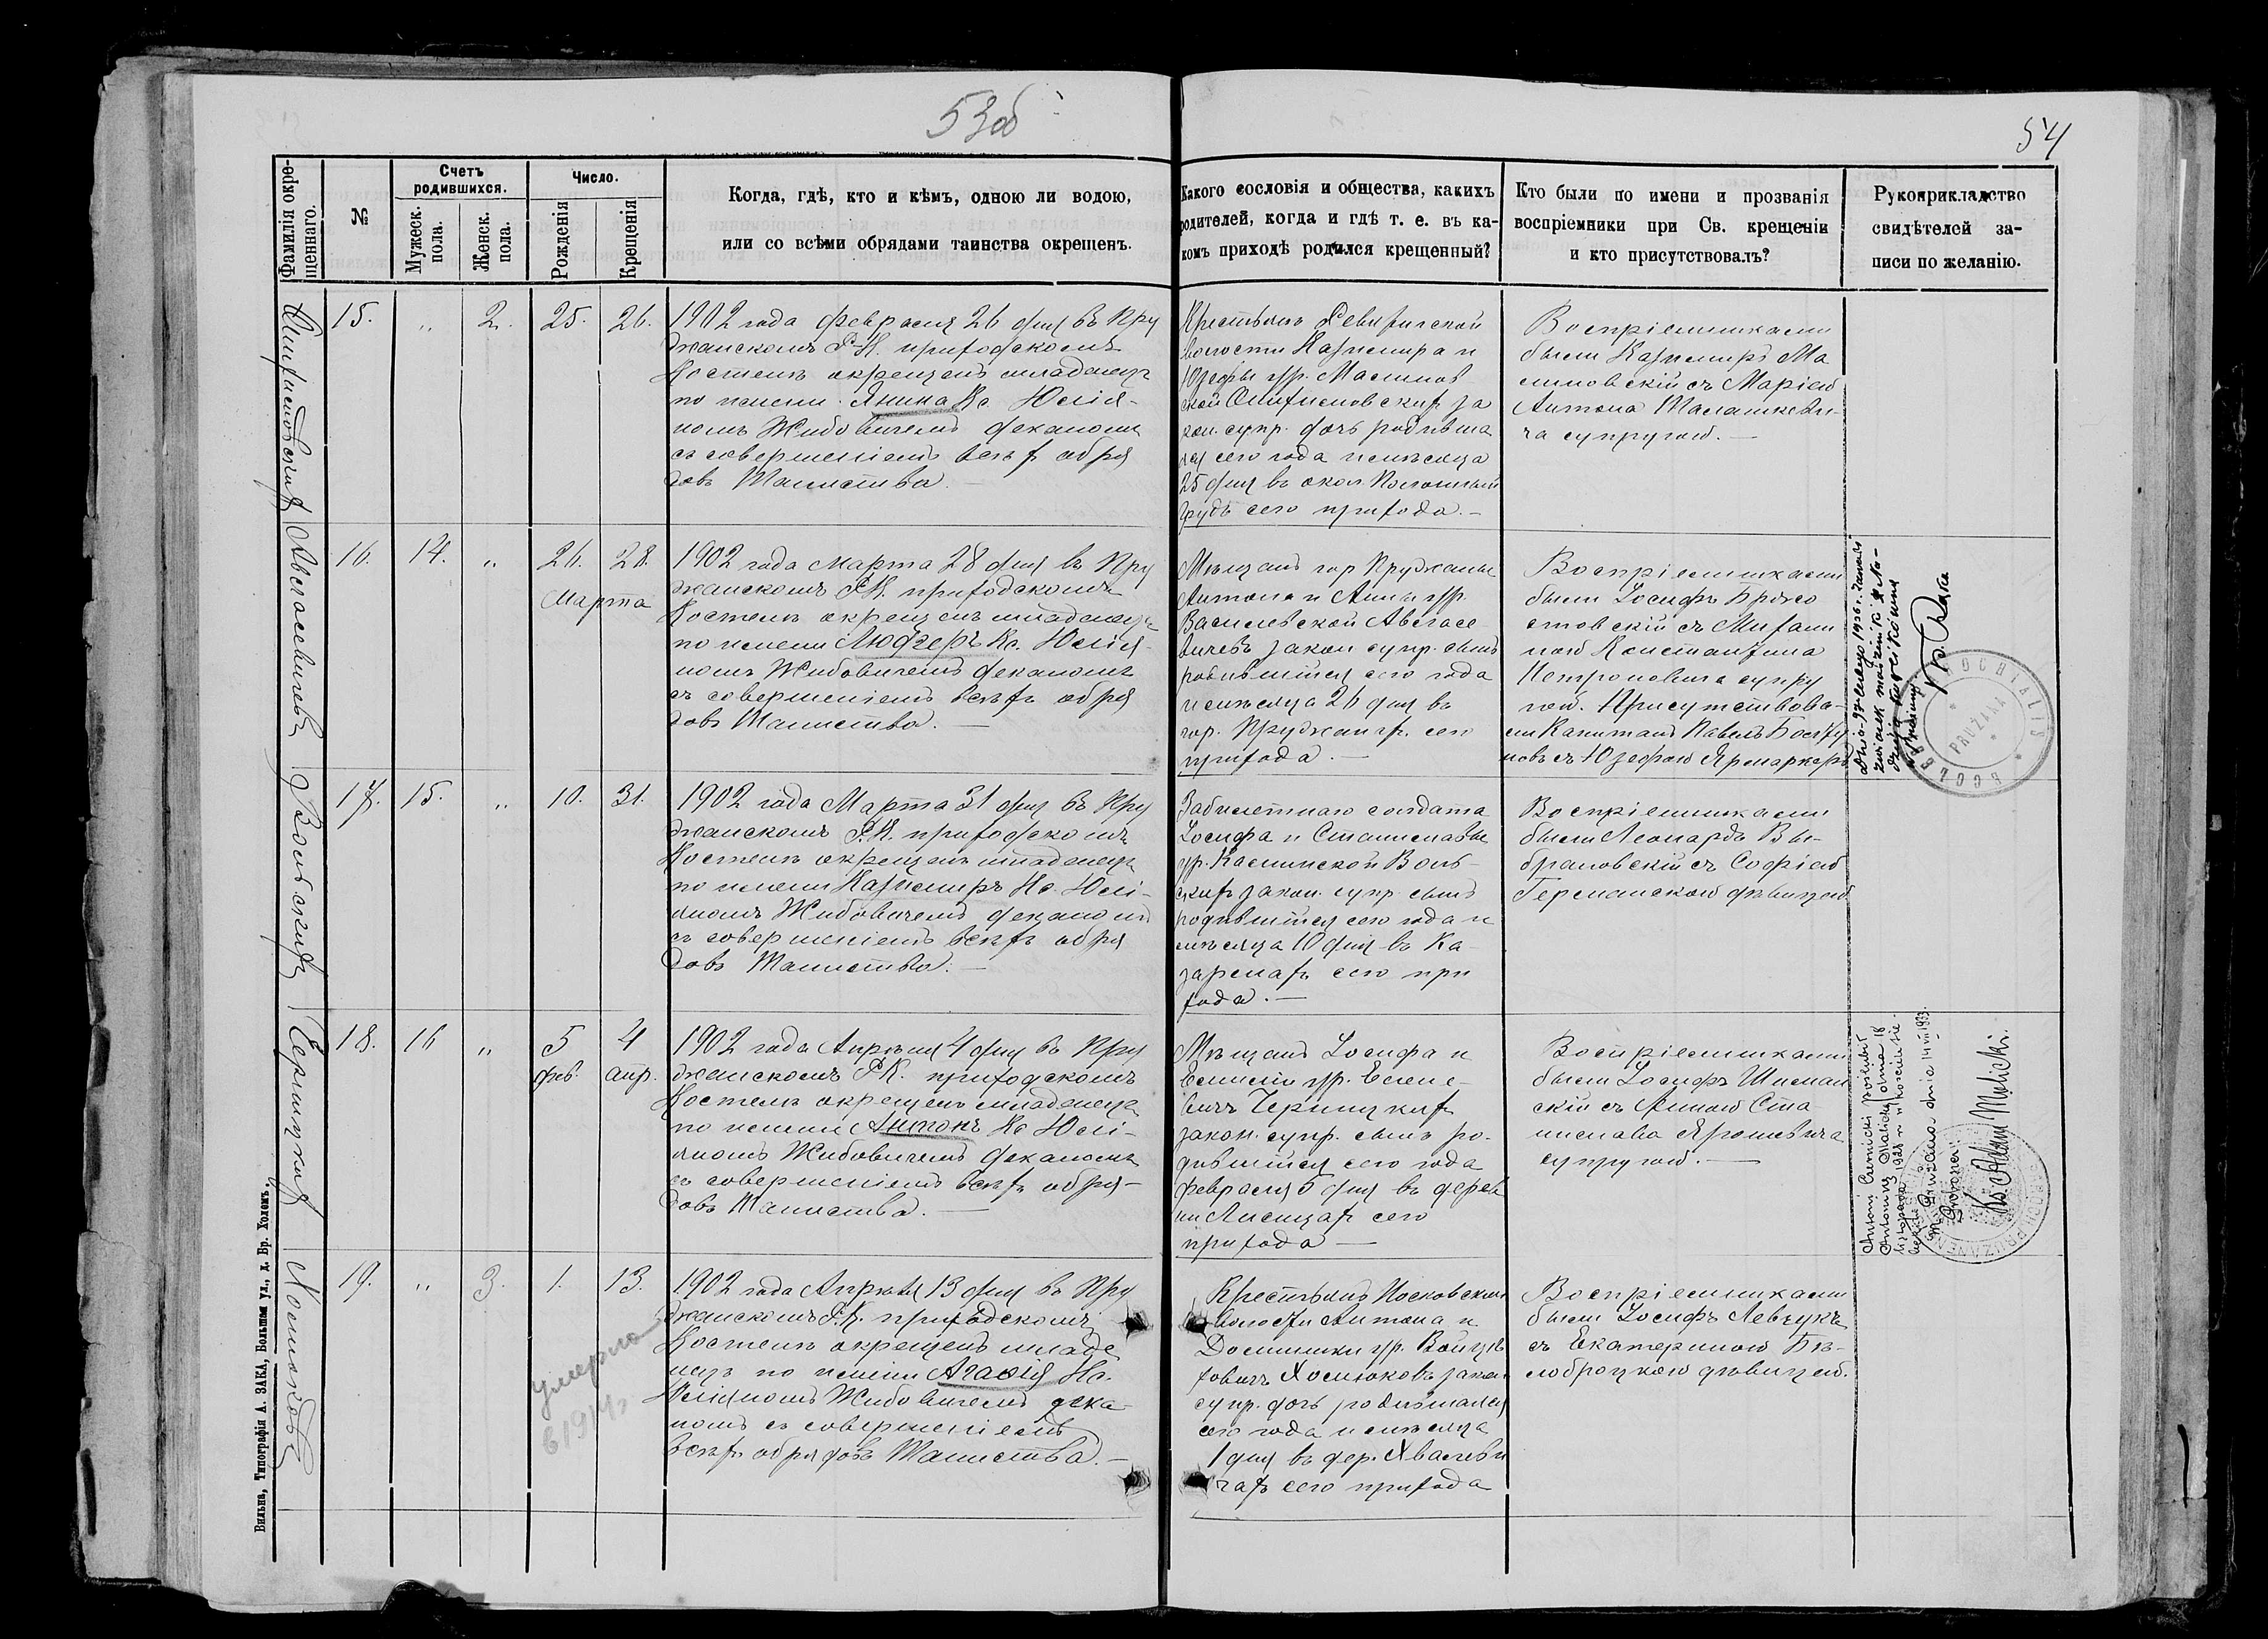 53об
54
Фамилія окре-
щеннаго.
№
Счетъ
родившихся.
Мужеск.
пола.
Женск.
пола.
Число.
Рожденія
Крещенія
Когда, гдѣ, кто и кѣмъ, одною ли водою,
или со всѣми обрядами таинства окрещенъ.
Какого сословія и общества, какихъ
родителей, когда и гдѣ т. е. въ ка-
комъ приходѣ родился крещенный?
Кто были по имени и прозванія
воспріемники при Св. крещеніи
и кто присутствовалъ?
Рукоприкладство
свидѣтелей за-
писи по желанію.
15.
„
2.
25.
26.
1902 года Февраля 26 дня въ Пру
жанскомъ Р-К. приходскомъ
Костелѣ окрещенъ младенецъ
по имени Янина Кс. Юлія-
номъ Жибовичемъ деканомъ
съ совершеніемъ всѣхъ обря
довъ Таинства.
Крестьянъ
волости Казимира и
Юзефы ур. Малинов
ской за
кон. супр. дочь родивша
яся сего года и мѣсяца
25 дня въ окол.
сего прихода.
Воспріемниками
были Казимиръ Ма
линовскій съ Маріею
Антона
ча супругою.
Авгасевичевъ
16.
14.
„
26.
28.
Марта
1902 года Марта 28 дня въ Пру
жанскомъ Р.К. приходскомъ
Костелѣ окрещенъ младенецъ
по имени Людгеръ Кс. Юлія-
номъ Жибовичемъ деканомъ
съ совершеніемъ всѣхъ обря
довъ Таинства.
Мѣщанъ гор Пружаны
Антона и Анны ур.
Василевской Авгасе
вичевъ закон супр. сынъ
родившійся сего года
и мѣсяца 26 дня въ
гор. Пружанѣ. сего
прихода.
Воспріемниками
были Іосифъ Бржо
стовскій съ Мелани
ею Константина
Петроновича супру
гою. Присутствова-
ли Капитанъ Павелъ
новъ съ Юзефою
PRUŽANA
Вольскихъ
17.
15.
„
10.
31.
1902 года Марта 31 дня въ Пру
жанскомъ Р.К. приходскомъ
Костелѣ окрещенъ младенецъ
по имени Казимиръ Кс. Юлі-
яномъ Жибовичемъ деканомъ
съ совершеніемъ всѣхъ обря
довъ Таинства.
Забилетнаго солдата
Іосифа и Станиславы
ур. Калинской Воль-
скихъ закон. супр. сынъ
родившійся сего года и
мѣсяца 10 дня въ Ка-
зармахъ сего при
хода.
Воспріемниками
были Леонардъ Вы-
брановскій съ Софіею
Германскою дѣвицею.
Черницкихъ
18.
16
„
5
фев.
4
апр.
1902 года Апрѣля 4 дня въ Пру
жанскомъ Р.К. приходскомъ
Костелѣ окрещенъ младенецъ
по имени Антонъ Кс Юлі-
яномъ Жибовичемъ деканомъ
съ совершеніемъ всѣхъ обря-
довъ Таинства.
Мѣщанъ Іосифа и
Емиліи ур.
Черницкихъ
закон. супр. сынъ ро-
дившійся сего года
Февраля 5 дня въ дерев
ни Лисицахъ сего
прихода
Воспріемниками
были Іосифъ Шиман
скій съ Анною Ста
нислава Ярошевича
супругою.
Antoni Czernicki poślubił
Antoninę Malicką dnia 18
listopada 1928 r. w kościele
Prużana dnia 14 VII 1933.
Proboszcz:
Ks. Adam Malicki.
Хомюковъ
19.
„
3.
1.
13.
умерла
в 1914 г
1902 года Апрѣля 13 дня въ Пру
жанскомъ Р.К. приходскомъ
Костелѣ окрещенъ младе
нецъ по имени Агафія Кс.
Юліяномъ Жибовичемъ дека-
номъ съ совершеніемъ
всѣхъ обрядовъ Таинства.
Крестьянъ Носковской
волости Антона и
Доминики ур. Войцѣ
ховичъ Хомюковъ закон.
супр. дочь родившаяся
сего года и мѣсяца
1 дня въ дер. Хвалеви
чахъ сего прихода
Воспріемниками
были Іосифъ Левчукъ
съ Екатериною Бѣ-
лоброцкою дѣвицею.
Вильна, Типографія А. ЗАКА, Большая ул., д. Бр. Холемъ.